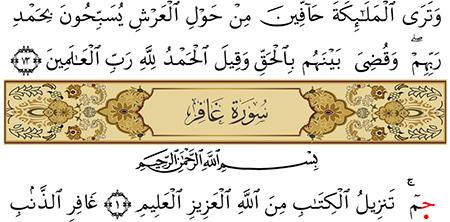 وَتَرَى ٱلْمَلَٰٓئِكَةَ حَآفِّينَ مِنْ حَوْلِ ٱلْعَرْشِ يُسَبِّحُونَ بِحَمْدِ
رَبِّهِمْۖ وَقُضِيَ بَيْنَهُم بِٱلْحَقِّ وَقِيلَ ٱلْحَمْدُ لِلَّهِ رَبِّ ٱلْعَٰلَمِينَ ٧٣
سُورَةُ غَافِرٍ
بِسْمِ ٱللَّهِ ٱلرَّحْمَٰنِ ٱلرَّحِيمِ
حمٓۚ تَنزِيلُ ٱلْكِتَٰبِ مِنَ ٱللَّهِ ٱلْعَزِيزِ ٱلْعَلِيمِ ١ غَافِرِ ٱلذَّنۢبِ